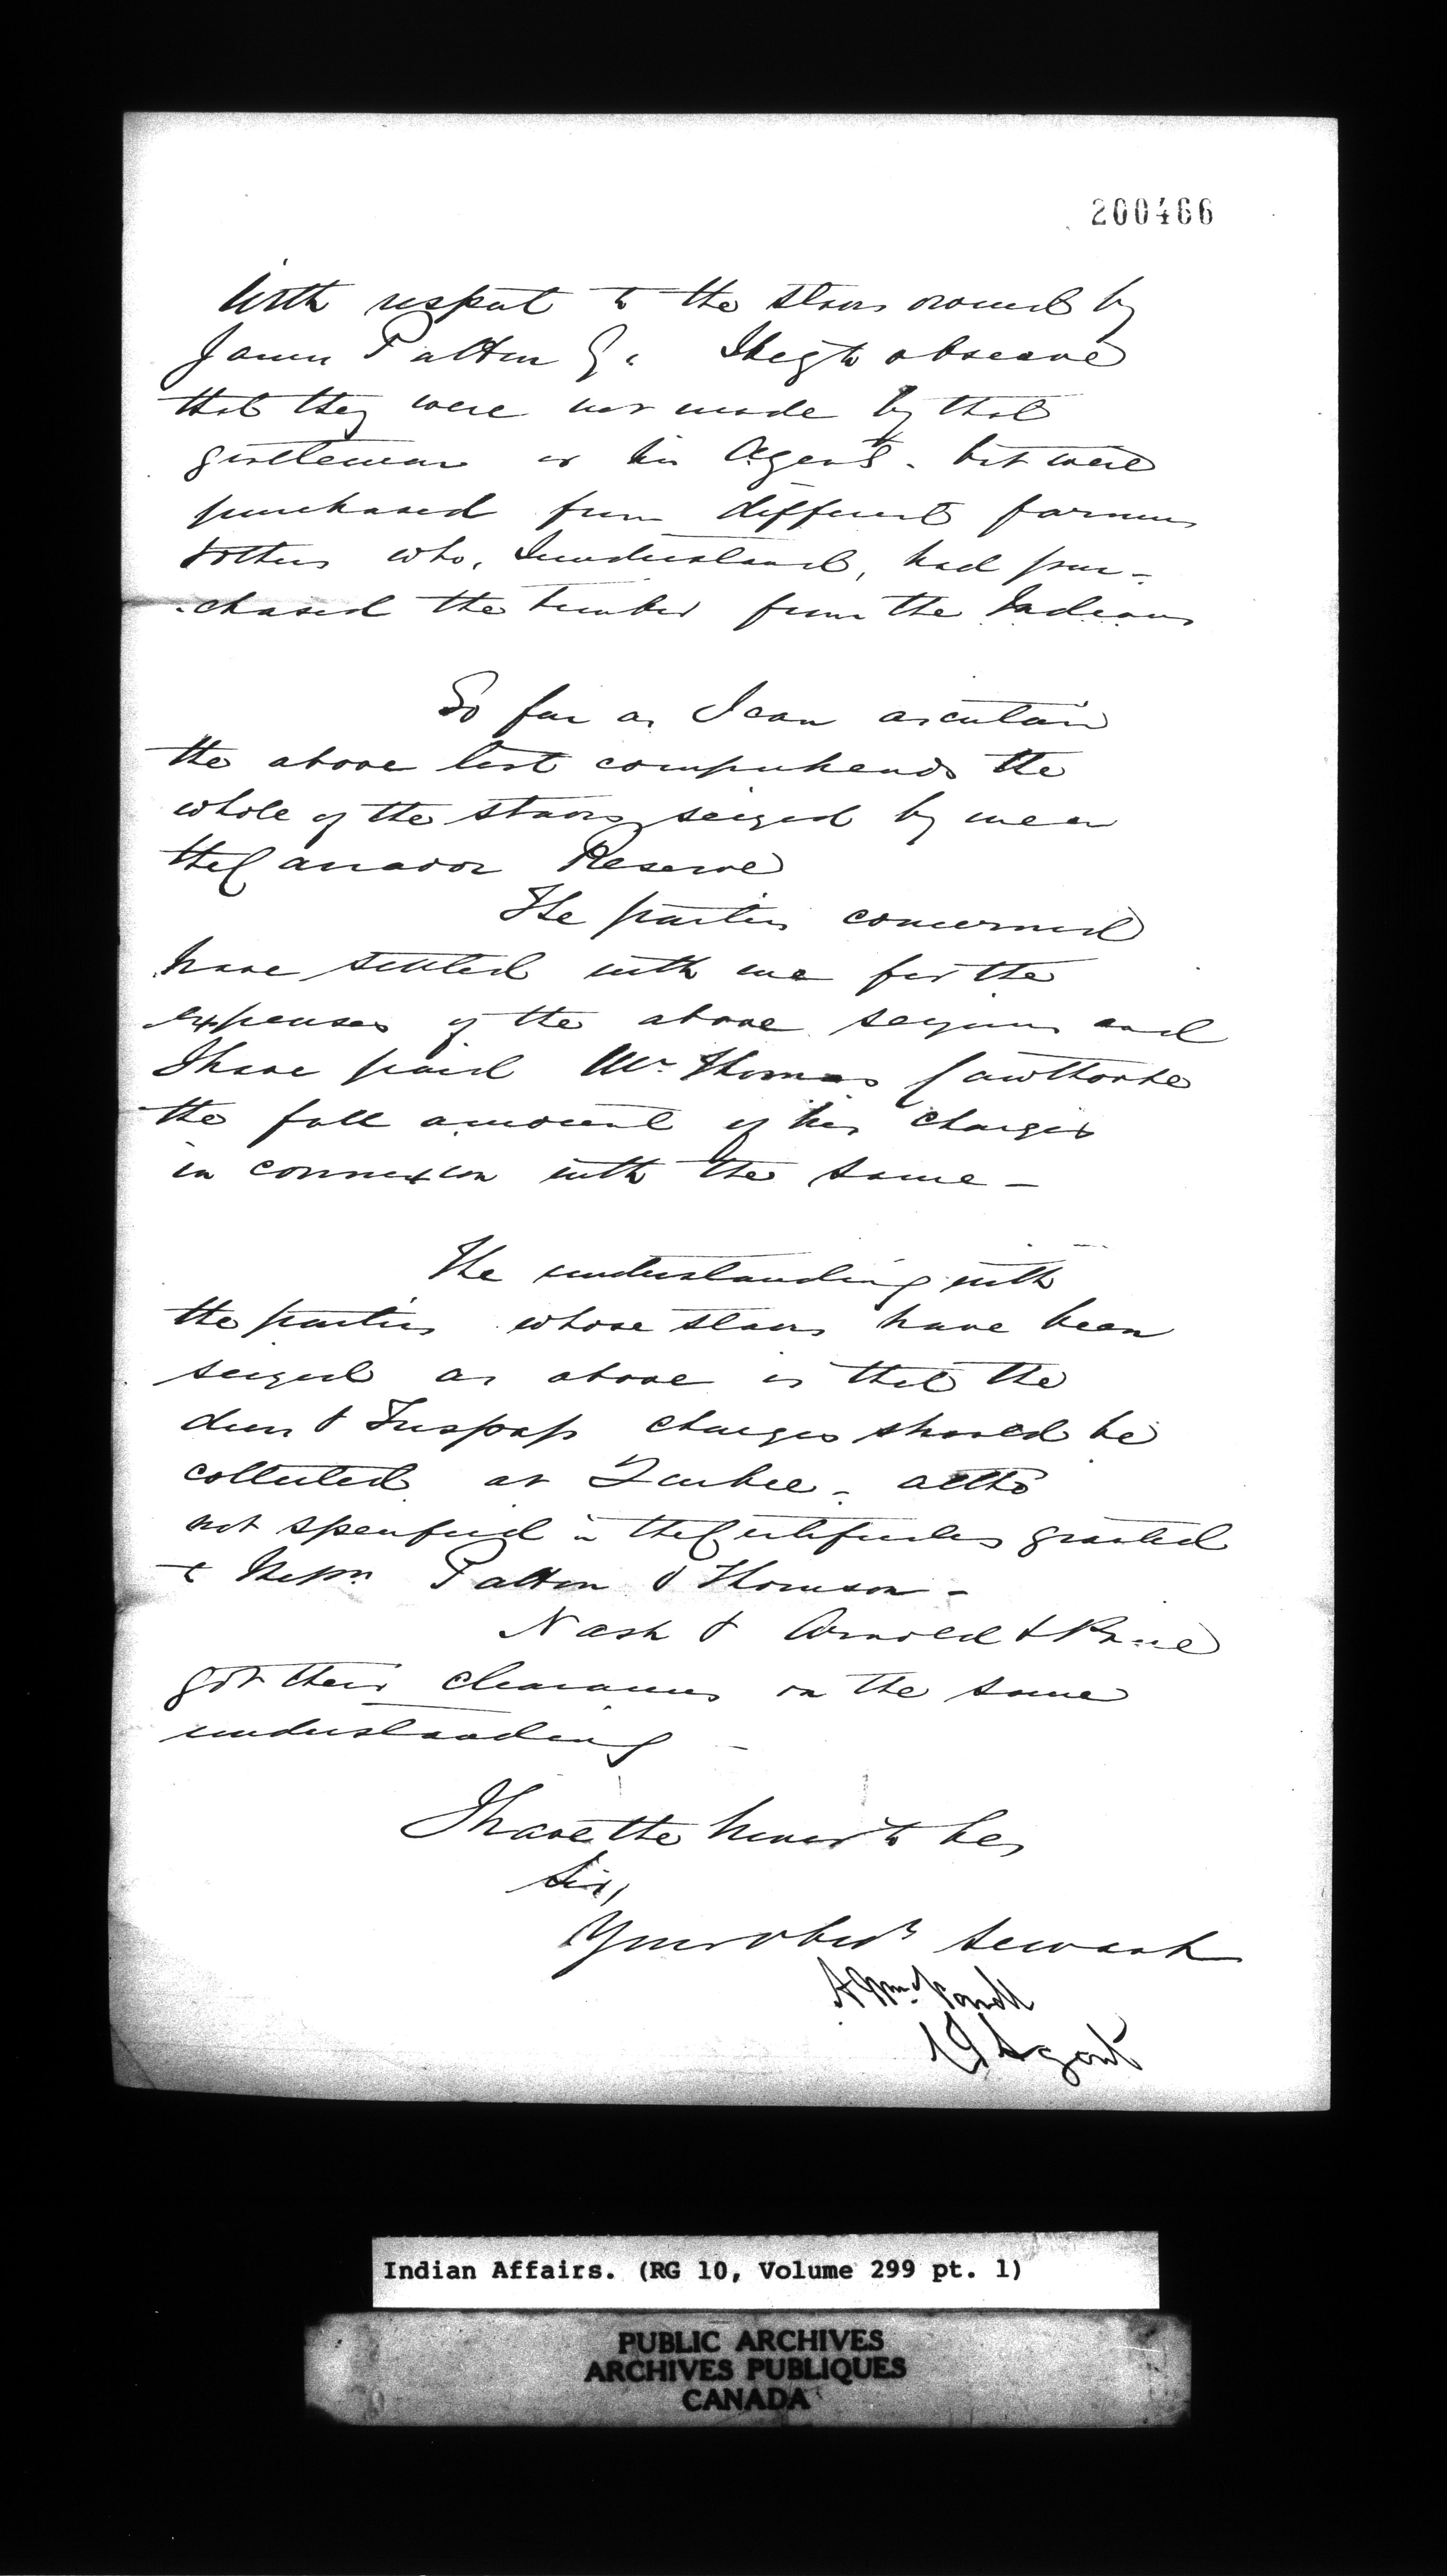 200466
With respect to the staves owned by
James Patton Esq. I beg to observe
that they were not made by that
gentleman or his Agents - but were
purchased from different farmers
& others who, I understand, had pur-
-chased the timber from the Indians
So far as I can ascertain
the above list comprehends the
whole of the staves seized by me on
the Caradoc Reserve
The parties concerned
have settled with me for the
expenses of the above seizures and
I have paid Mr Thomas Cawthorpe
the full amount of his charges
in connexion with the same -
The understanding with
the parties whose staves have been
seized as above is that the
dues & Trespass charges should be
collected at Quebec - altho
not specified in the Certificates granted
to Messrs Patton & Thomson -
Nash & Arnold &
got their clearances on the same
understanding -
I have the honor to be,
Sir,
Your obedt Servant
Agent
Indian Affairs. (RG 10, Volume 299 pt. 1)
PUBLIC ARCHIVES
ARCHIVES PUBLIQUES
CANADA